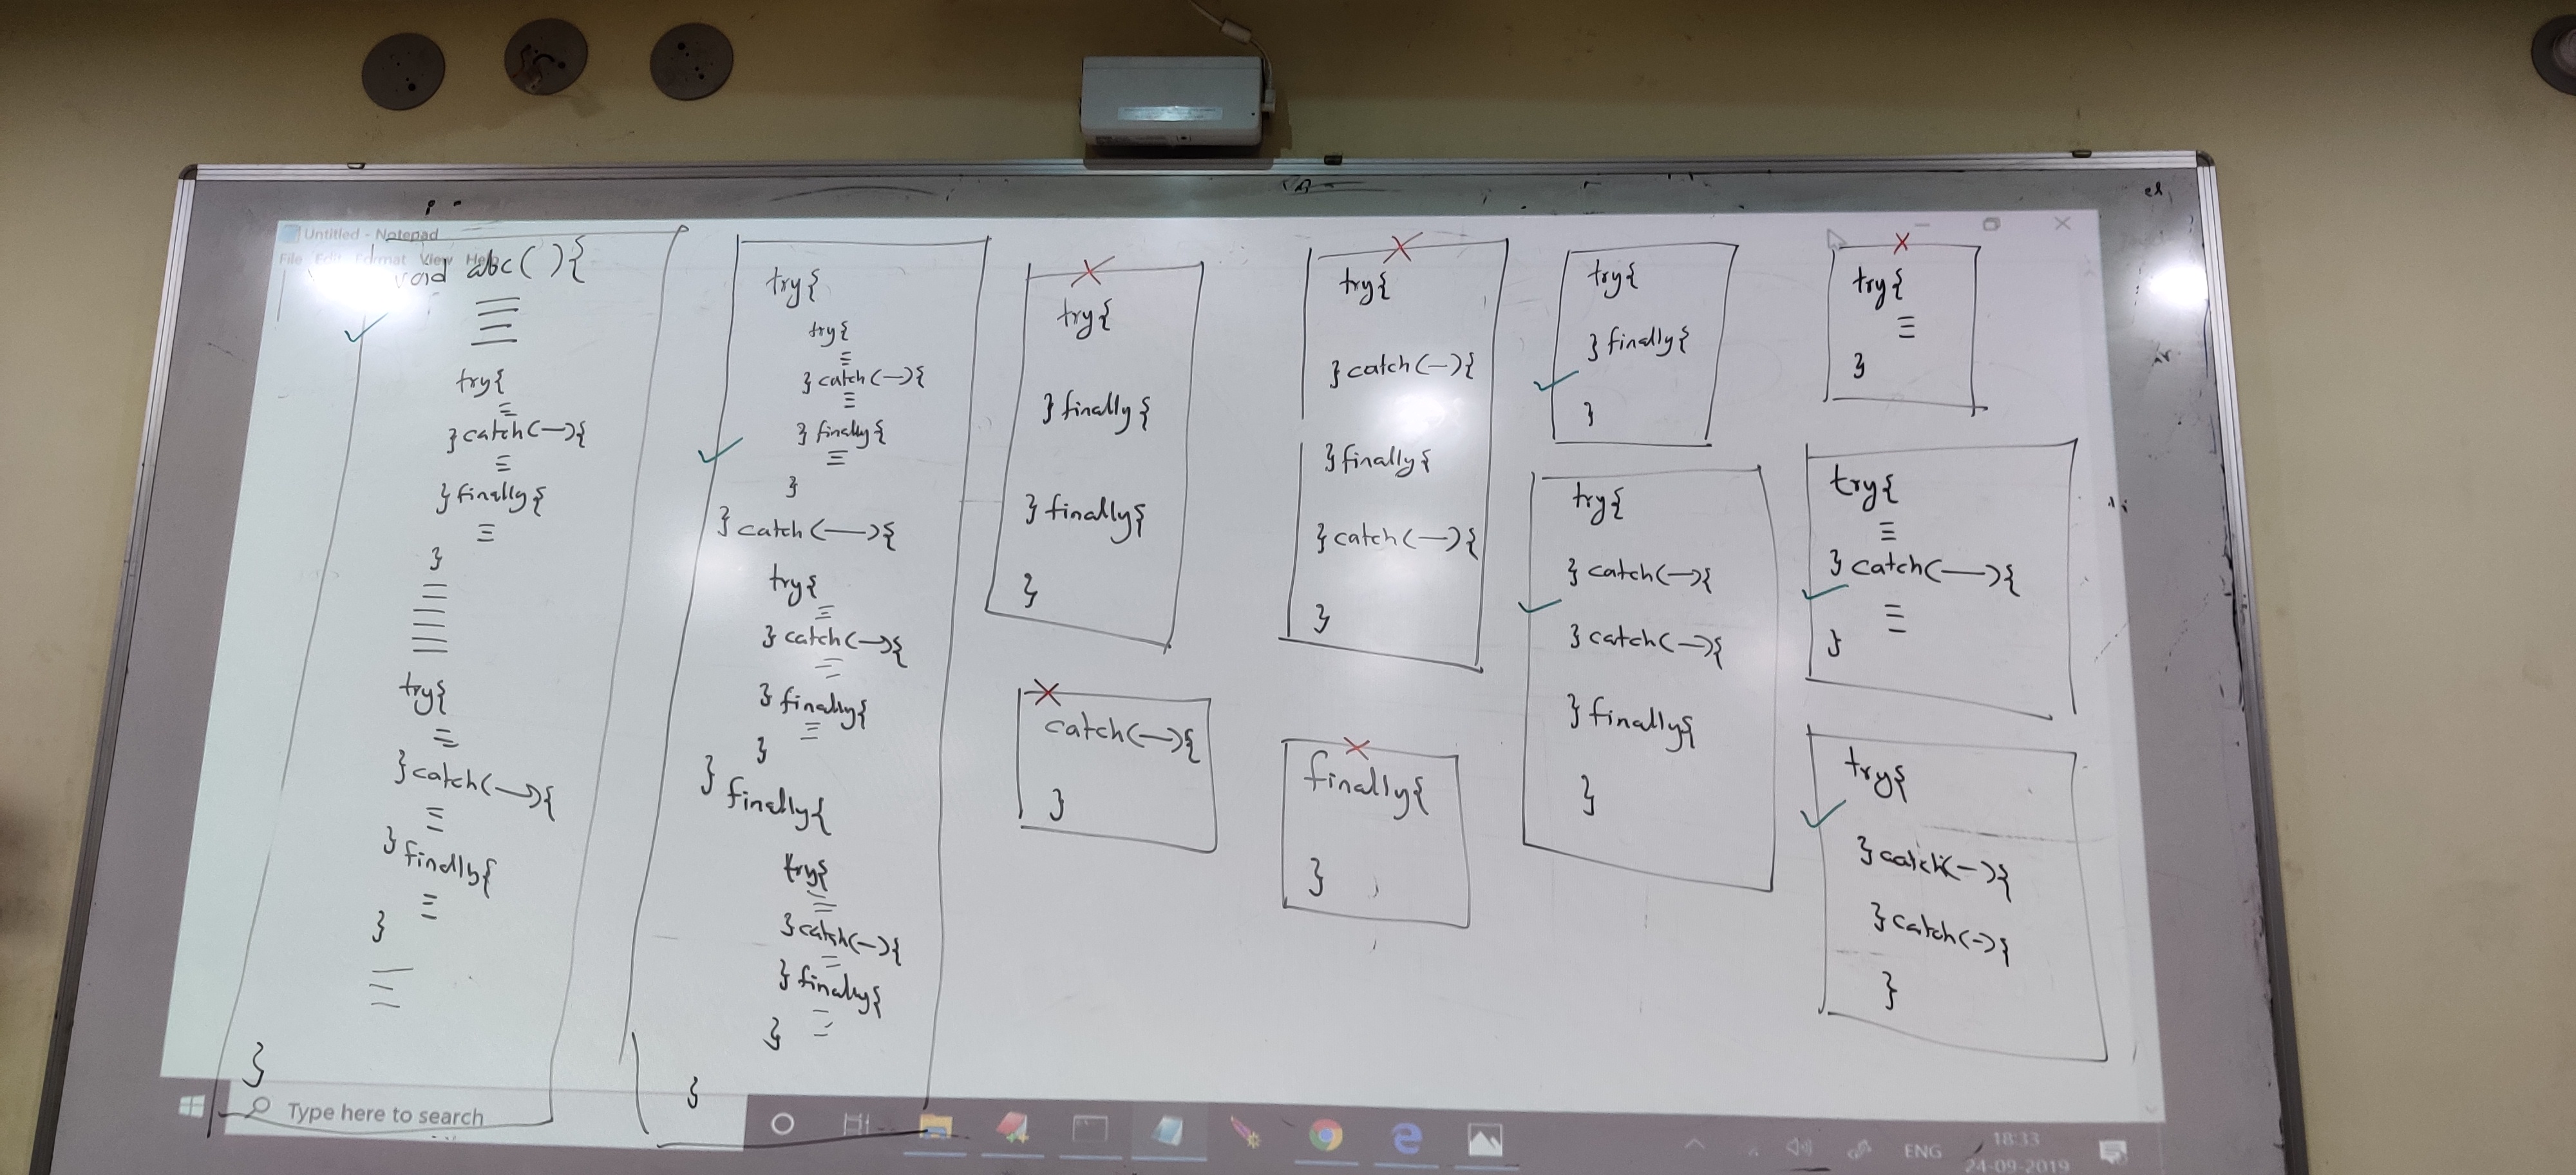 Untitled - Notepad
File Edit Format View Help
void abc( ){
try{
}catch(—){
}finally{
}
try{
}catch(—){
}finally{
}
}
try{
try{
}catch(—){
}finally{
}
}catch(—){
try{
}catch(—){
}finally{
}
}finally{
try{
}catch(—){
}finally{
}
}
try{
}finally{
}finally{
}
catch(—){
}
try{
}catch(—){
}finally{
}catch(—){
}
finally{
}
try{
}finally{
}
try{
}catch(—){
}catch(—){
}finally{
}
try{
}
try{
}catch(—){
}
try{
}catch(—){
}catch(—){
}
Type here to search
ENG
18:33
24-09-2019